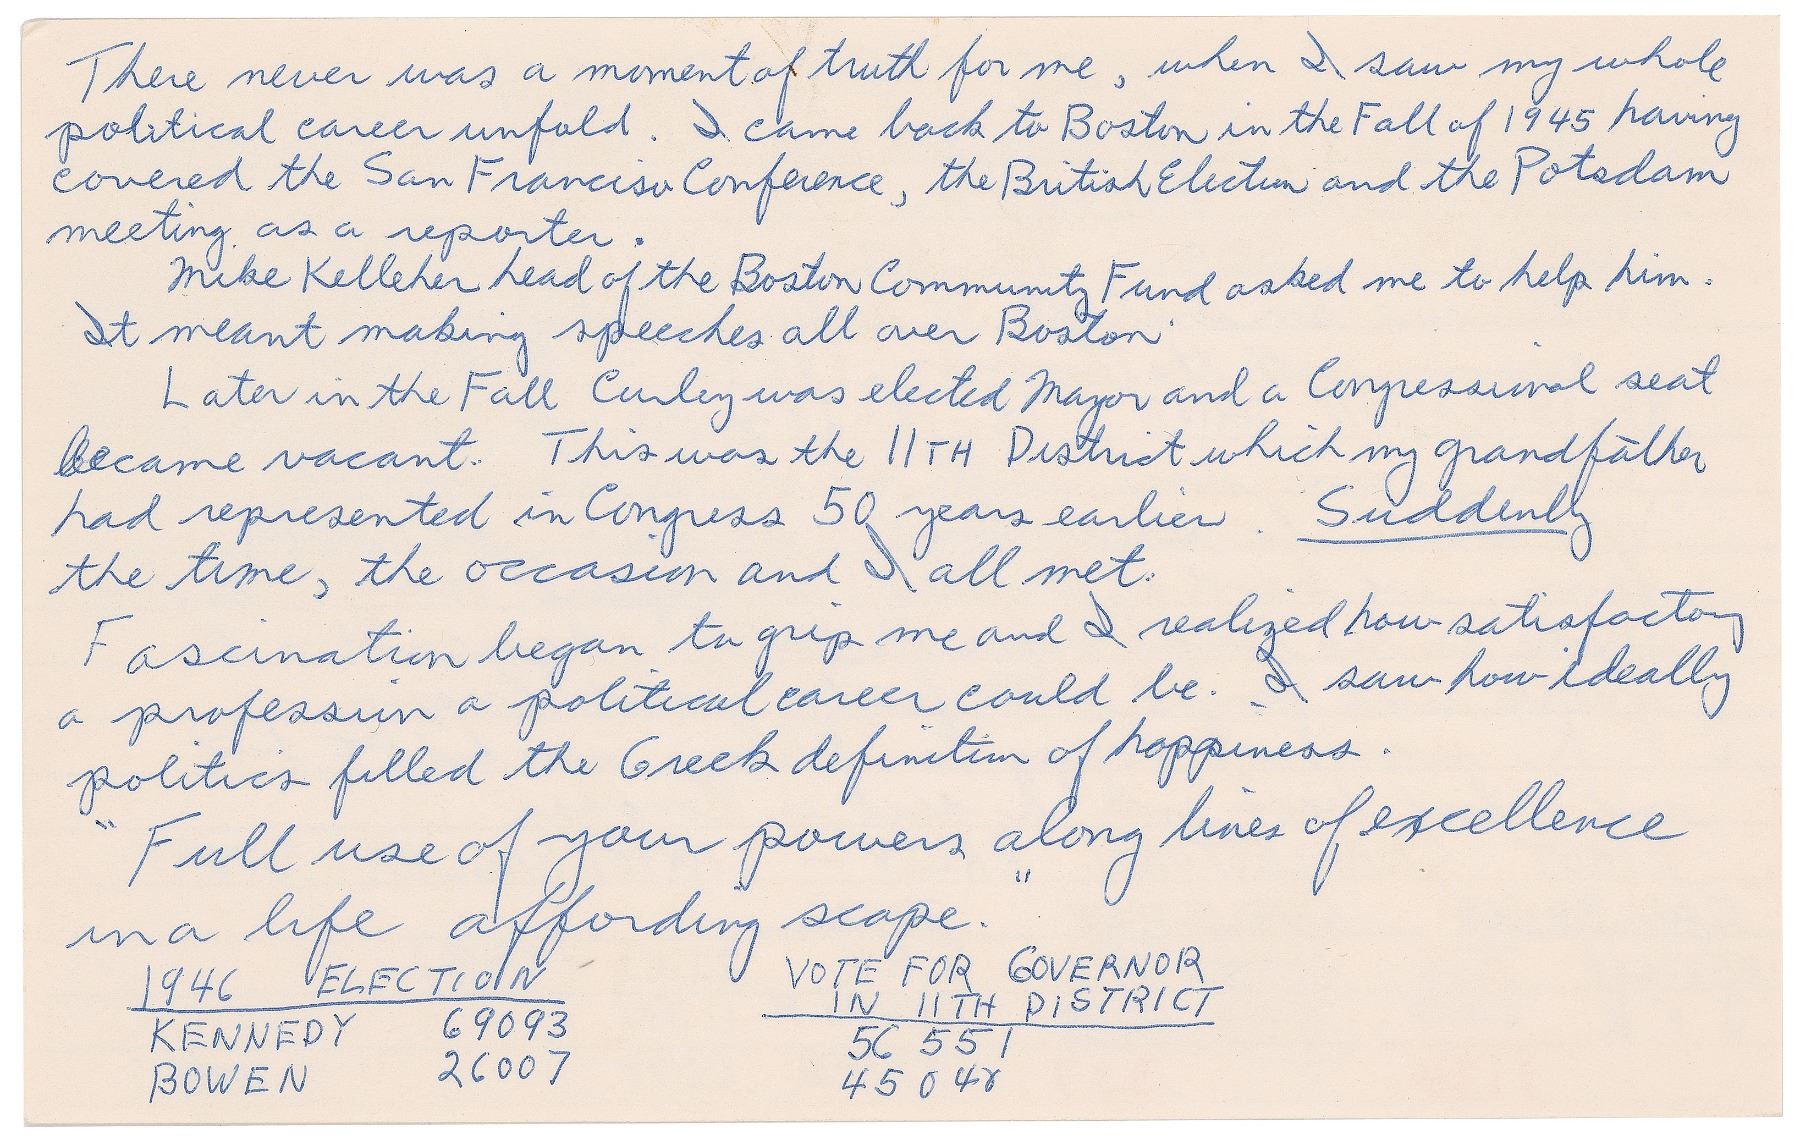 There never was a moment of truth for me, when I saw my whole
political career unfold. I came back to Boston in the Fall of 1945 having
covered the San Francisco Conference, the British Election and the Potsdam
meeting as a reporter.
Mike Kelleher head of the Boston Community Fund asked me to help him.
It meant making speeches all over Boston.
Later in the Fall Curley was elected Mayor and a Congressional seat
became vacant. This was the 11TH District which my grandfather
had represented in Congress 50 years earlier. Suddenly
the time, the occasion and I all met.
Fascination began to grip me and I realized how satisfactory
a profession a political career could be. I saw how ideally
politics filled the Greek definition of happiness.
"Full use of your powers along lines of excellence
in a life affording scope."
1946 ELECTION
KENNEDY 69093
BOWEN 26007
VOTE FOR GOVERNOR
IN 11TH DISTRICT
56 551
45 048